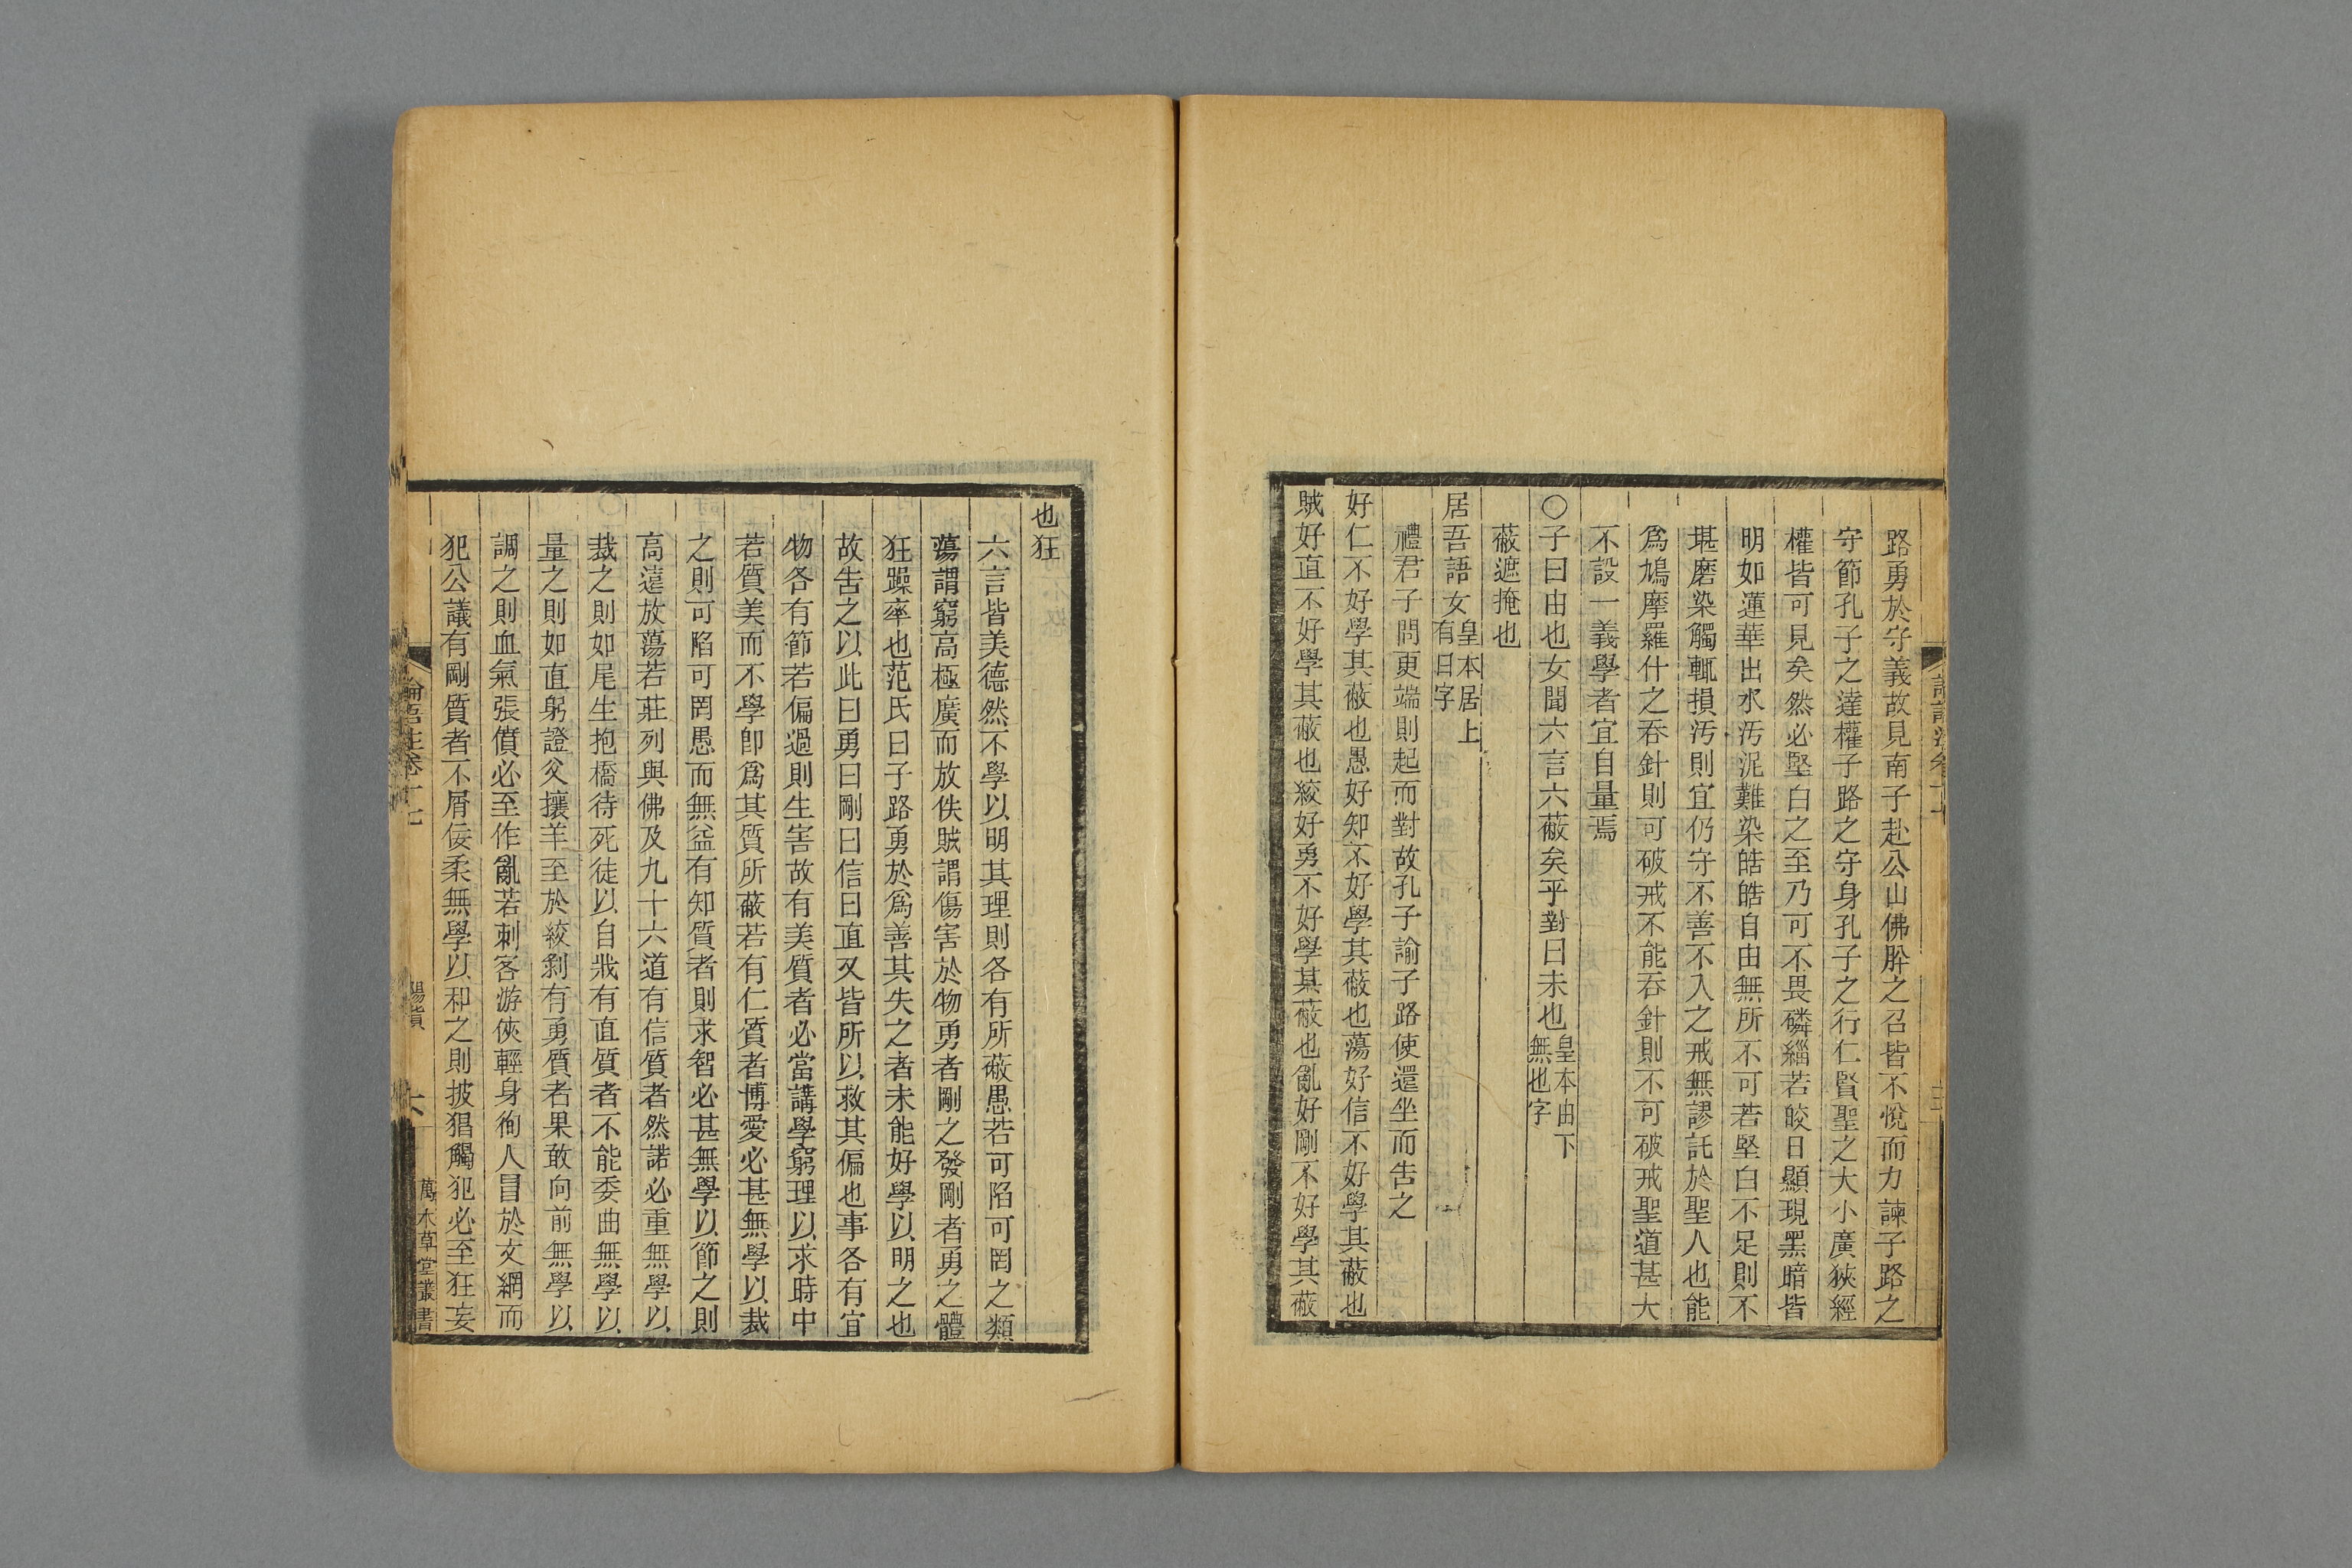 路勇於守義故見南子赴公山佛肸之召皆不悅而力諫子路之
守節孔子之達權子路之守身孔子之行仁賢聖之大小廣狹經
權皆可見矣然必堅白之至乃可不畏磷緇若皎日顯現黑暗皆
明如蓮華出水汚泥難染皓皓自由無所不可若堅白不足則不
堪磨染觸輒損汚則宜仍守不善不入之戒無謬託於聖人也能
爲鳩摩羅什之吞針則可破戒不能吞針則不可破戒聖道甚大
不設一義學者宜自量焉
〇子曰由也女聞六言六蔽矣乎對曰未也皇本由下無也字
蔽遮掩也
居吾語女皇本居上有曰字
禮君子問更端則起而對故孔子諭子路使還坐而告之
好仁不好學其蔽也愚好知不好學其蔽也蕩好信不好學其蔽也
賊好直不好學其蔽也絞好勇不好學其蔽也亂好剛不好學其蔽
也狂
六言皆美德然不學以明其理則各有所蔽愚若可陷可罔之類
蕩謂窮高極廣而放佚賊謂傷害於物勇者剛之發剛者勇之體
狂躁率也范氏曰子路勇於爲善其失之者未能好學以明之也
故告之以此曰勇曰剛曰信曰直又皆所以救其偏也事各有宜
物各有節若偏過則生害故有美質者必當講學窮理以求時中
若質美而不學卽爲其質所蔽若有仁質者博愛必甚無學以裁
之則可陷可罔愚而無益有知質者則求智必甚無學以節之則
高遠放蕩若莊列與佛及九十六道有信質者然諾必重無學以
裁之則如尾生抱橋待死徒以自戕有直質者不能委曲無學以
量之則如直躬證父攘羊至於絞剝有勇質者果敢向前無學以
調之則血氣張僨必至作亂若刺客游俠輕身徇人冒於文網而
犯公議有剛質者不屑佞柔無學以和之則披猖觸犯必至狂妄
論語注卷十七
陽貨
六
萬木草堂叢書